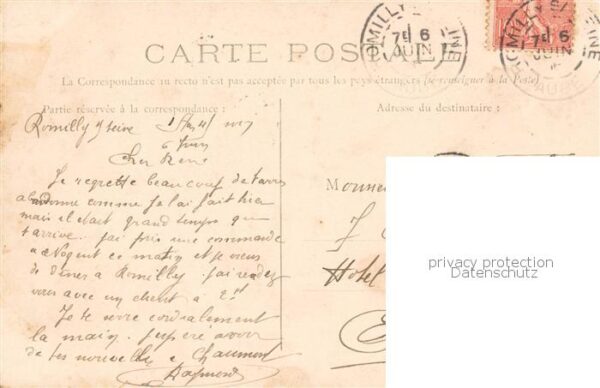 CARTE POSTALE
La Correspondance au recto n'est pas acceptée par tous les pays étrangers (se renseigner à la Poste)
Partie réservée à la correspondance :
Adresse du destinataire :
ROMILLY S/ SEINE
7E 6
JUIN
ROMILLY S/
7E 6
JUIN
AUBE
Romilly s/ Seine
6 Juin
Cher René
Je regrette beaucoup de t'avoir
abandonné comme je l'ai fait hier
mais il était grand temps que
j'arrive. j'ai pris une commande
a Nogent ce matin et je viens
de diner a Romilly. j'ai rendez
vous avec un client a 2h
Je te serre cordialement
la main. j'espère avoir
de tes nouvelles a Chaumont
Raymond
Monsieur
Hotel
privacy protection
Datenschutz